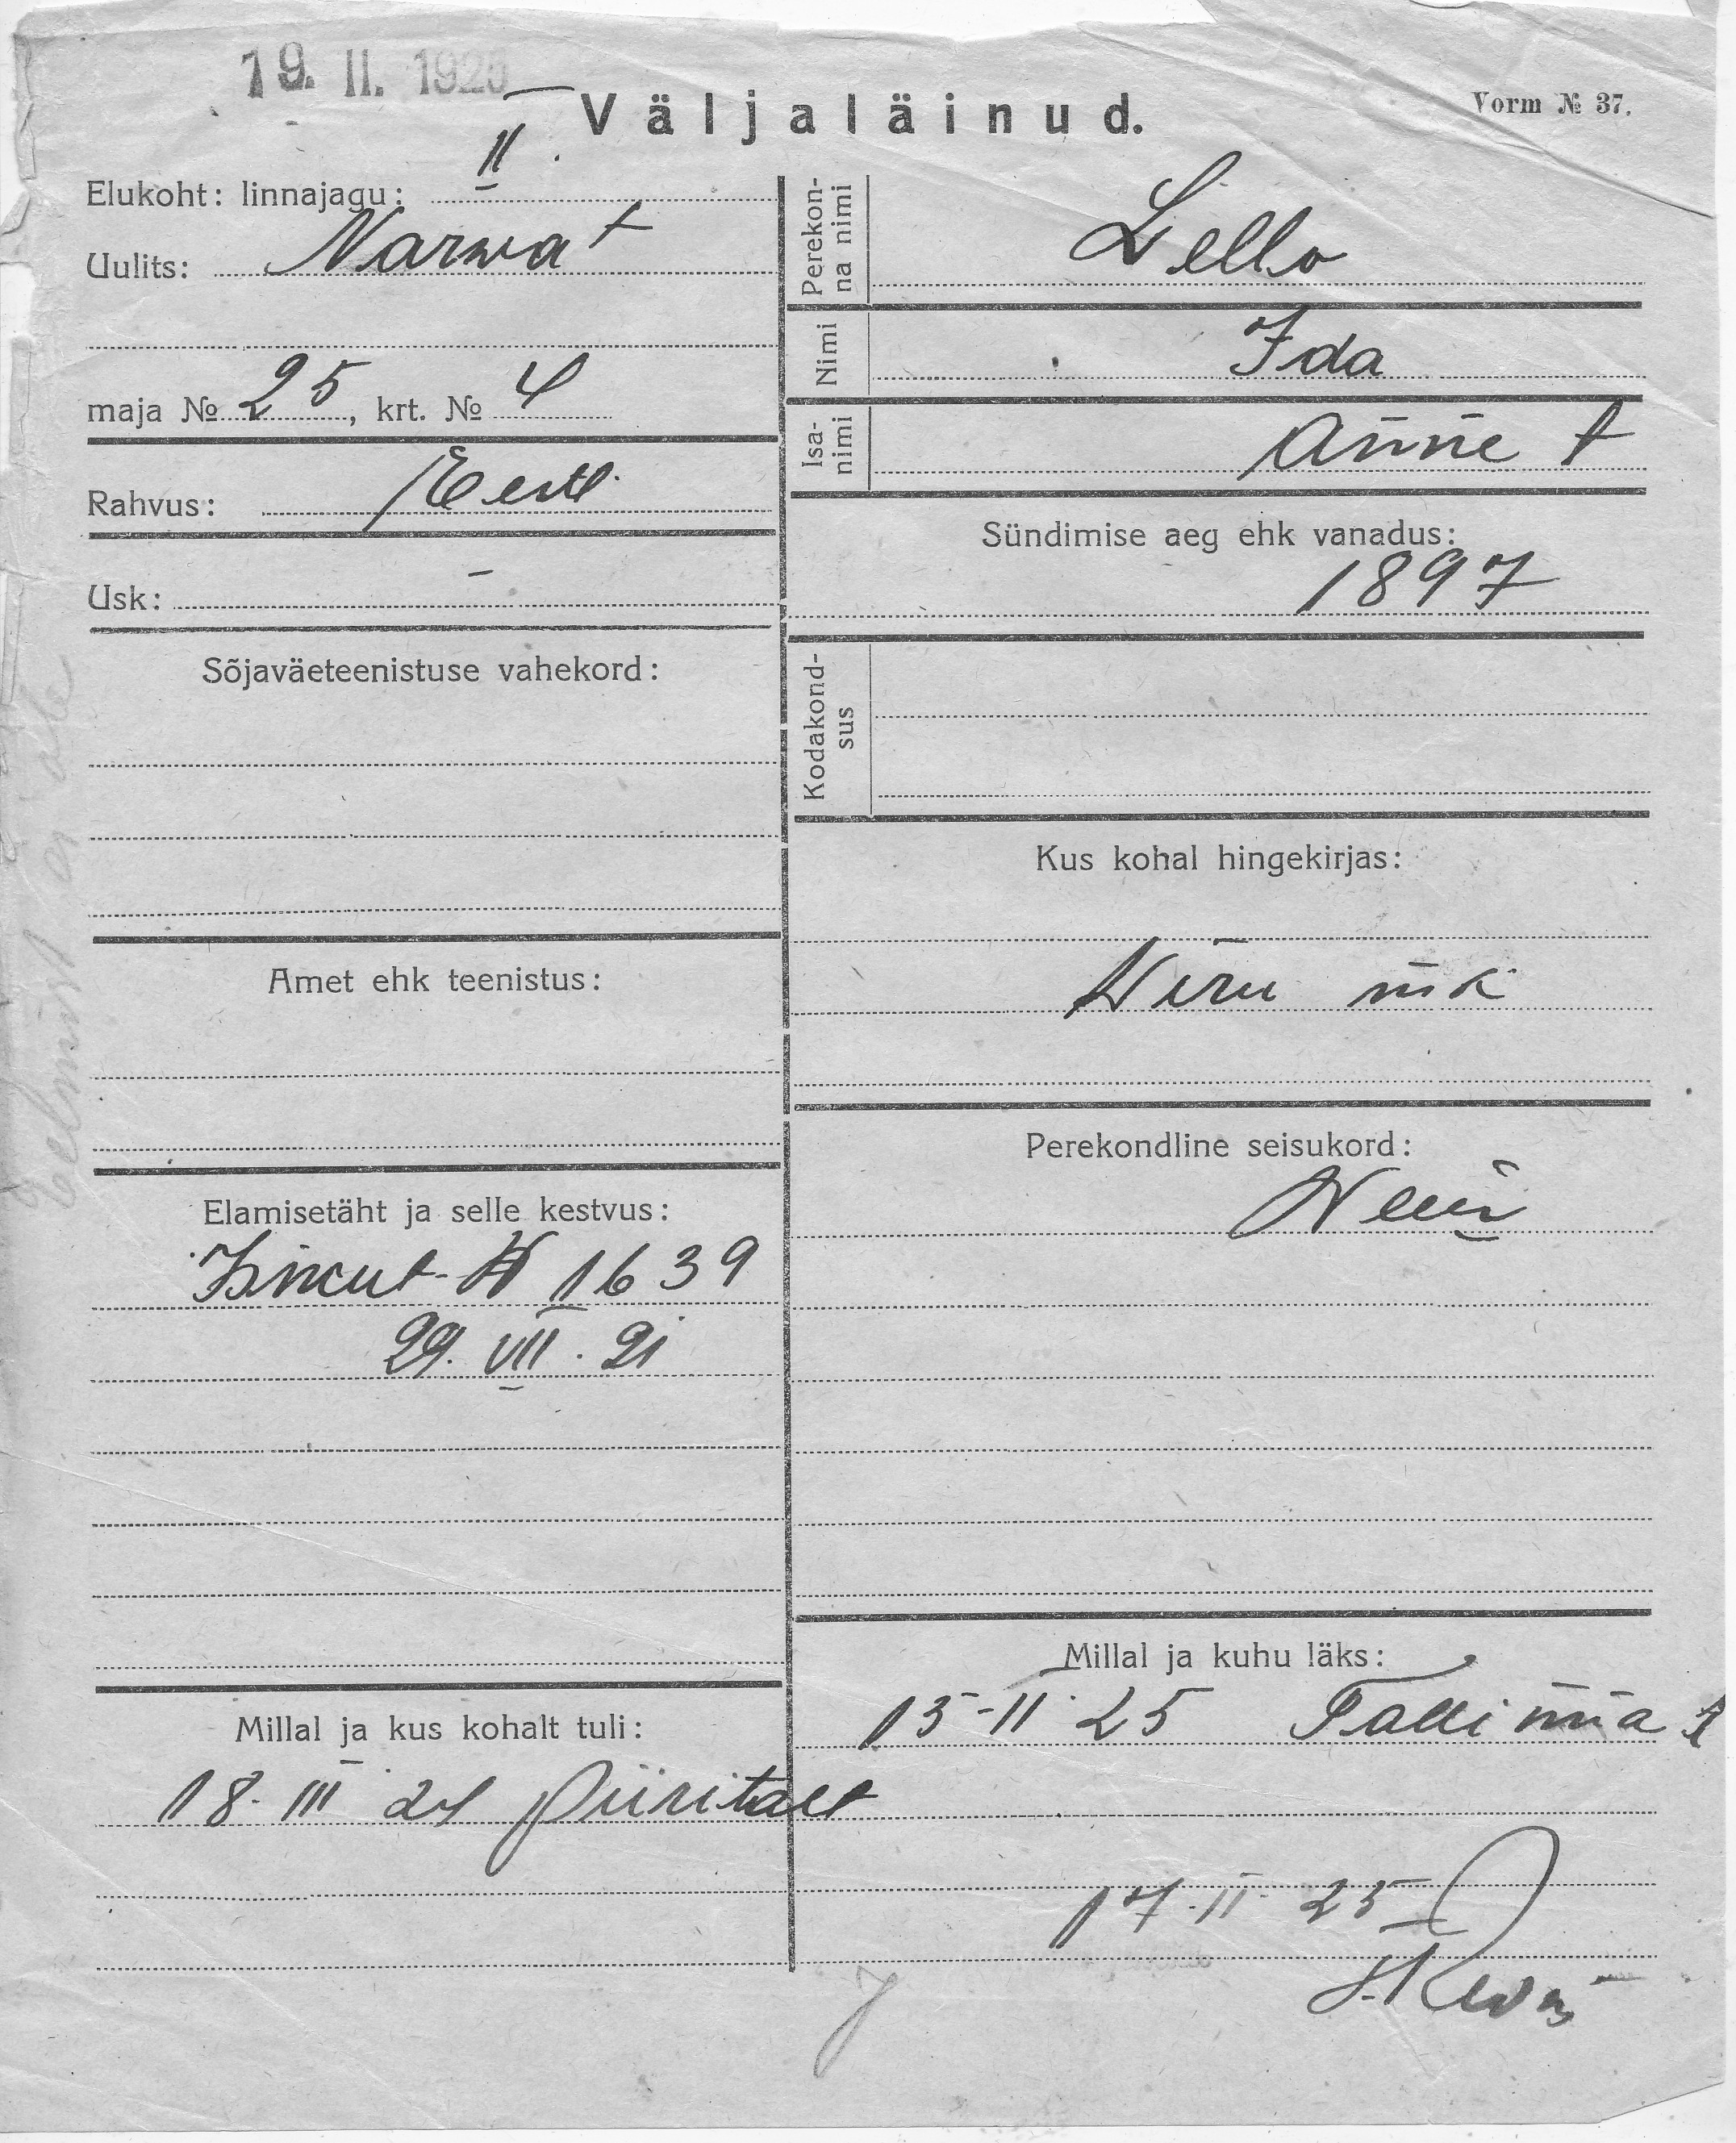 19. II. 1925
Väljaläinud.
Vorm № 37.
Elukoht: linnajagu: II.
Uulits: Narwa t
maja № 25, krt. № 4
Rahvus: Eestl.
Usk: –
Sõjaväeteenistuse vahekord:
Amet ehk teenistus:
Elamisetäht ja selle kestvus:
№ 1639
29. VII. 21
Millal ja kus kohalt tuli:
18. III 24 Piiritalt
Perekon-
na nimi
Lello
Nimi
Ida
Isa-
nimi
Anne t
Sündimise aeg ehk vanadus:
1897
Kodakond-
sus
Kus kohal hingekirjas:
Wiru mk
Perekondline seisukord:
Neiu
Millal ja kuhu läks:
15-II 25 Tallinna t
17. II. 25